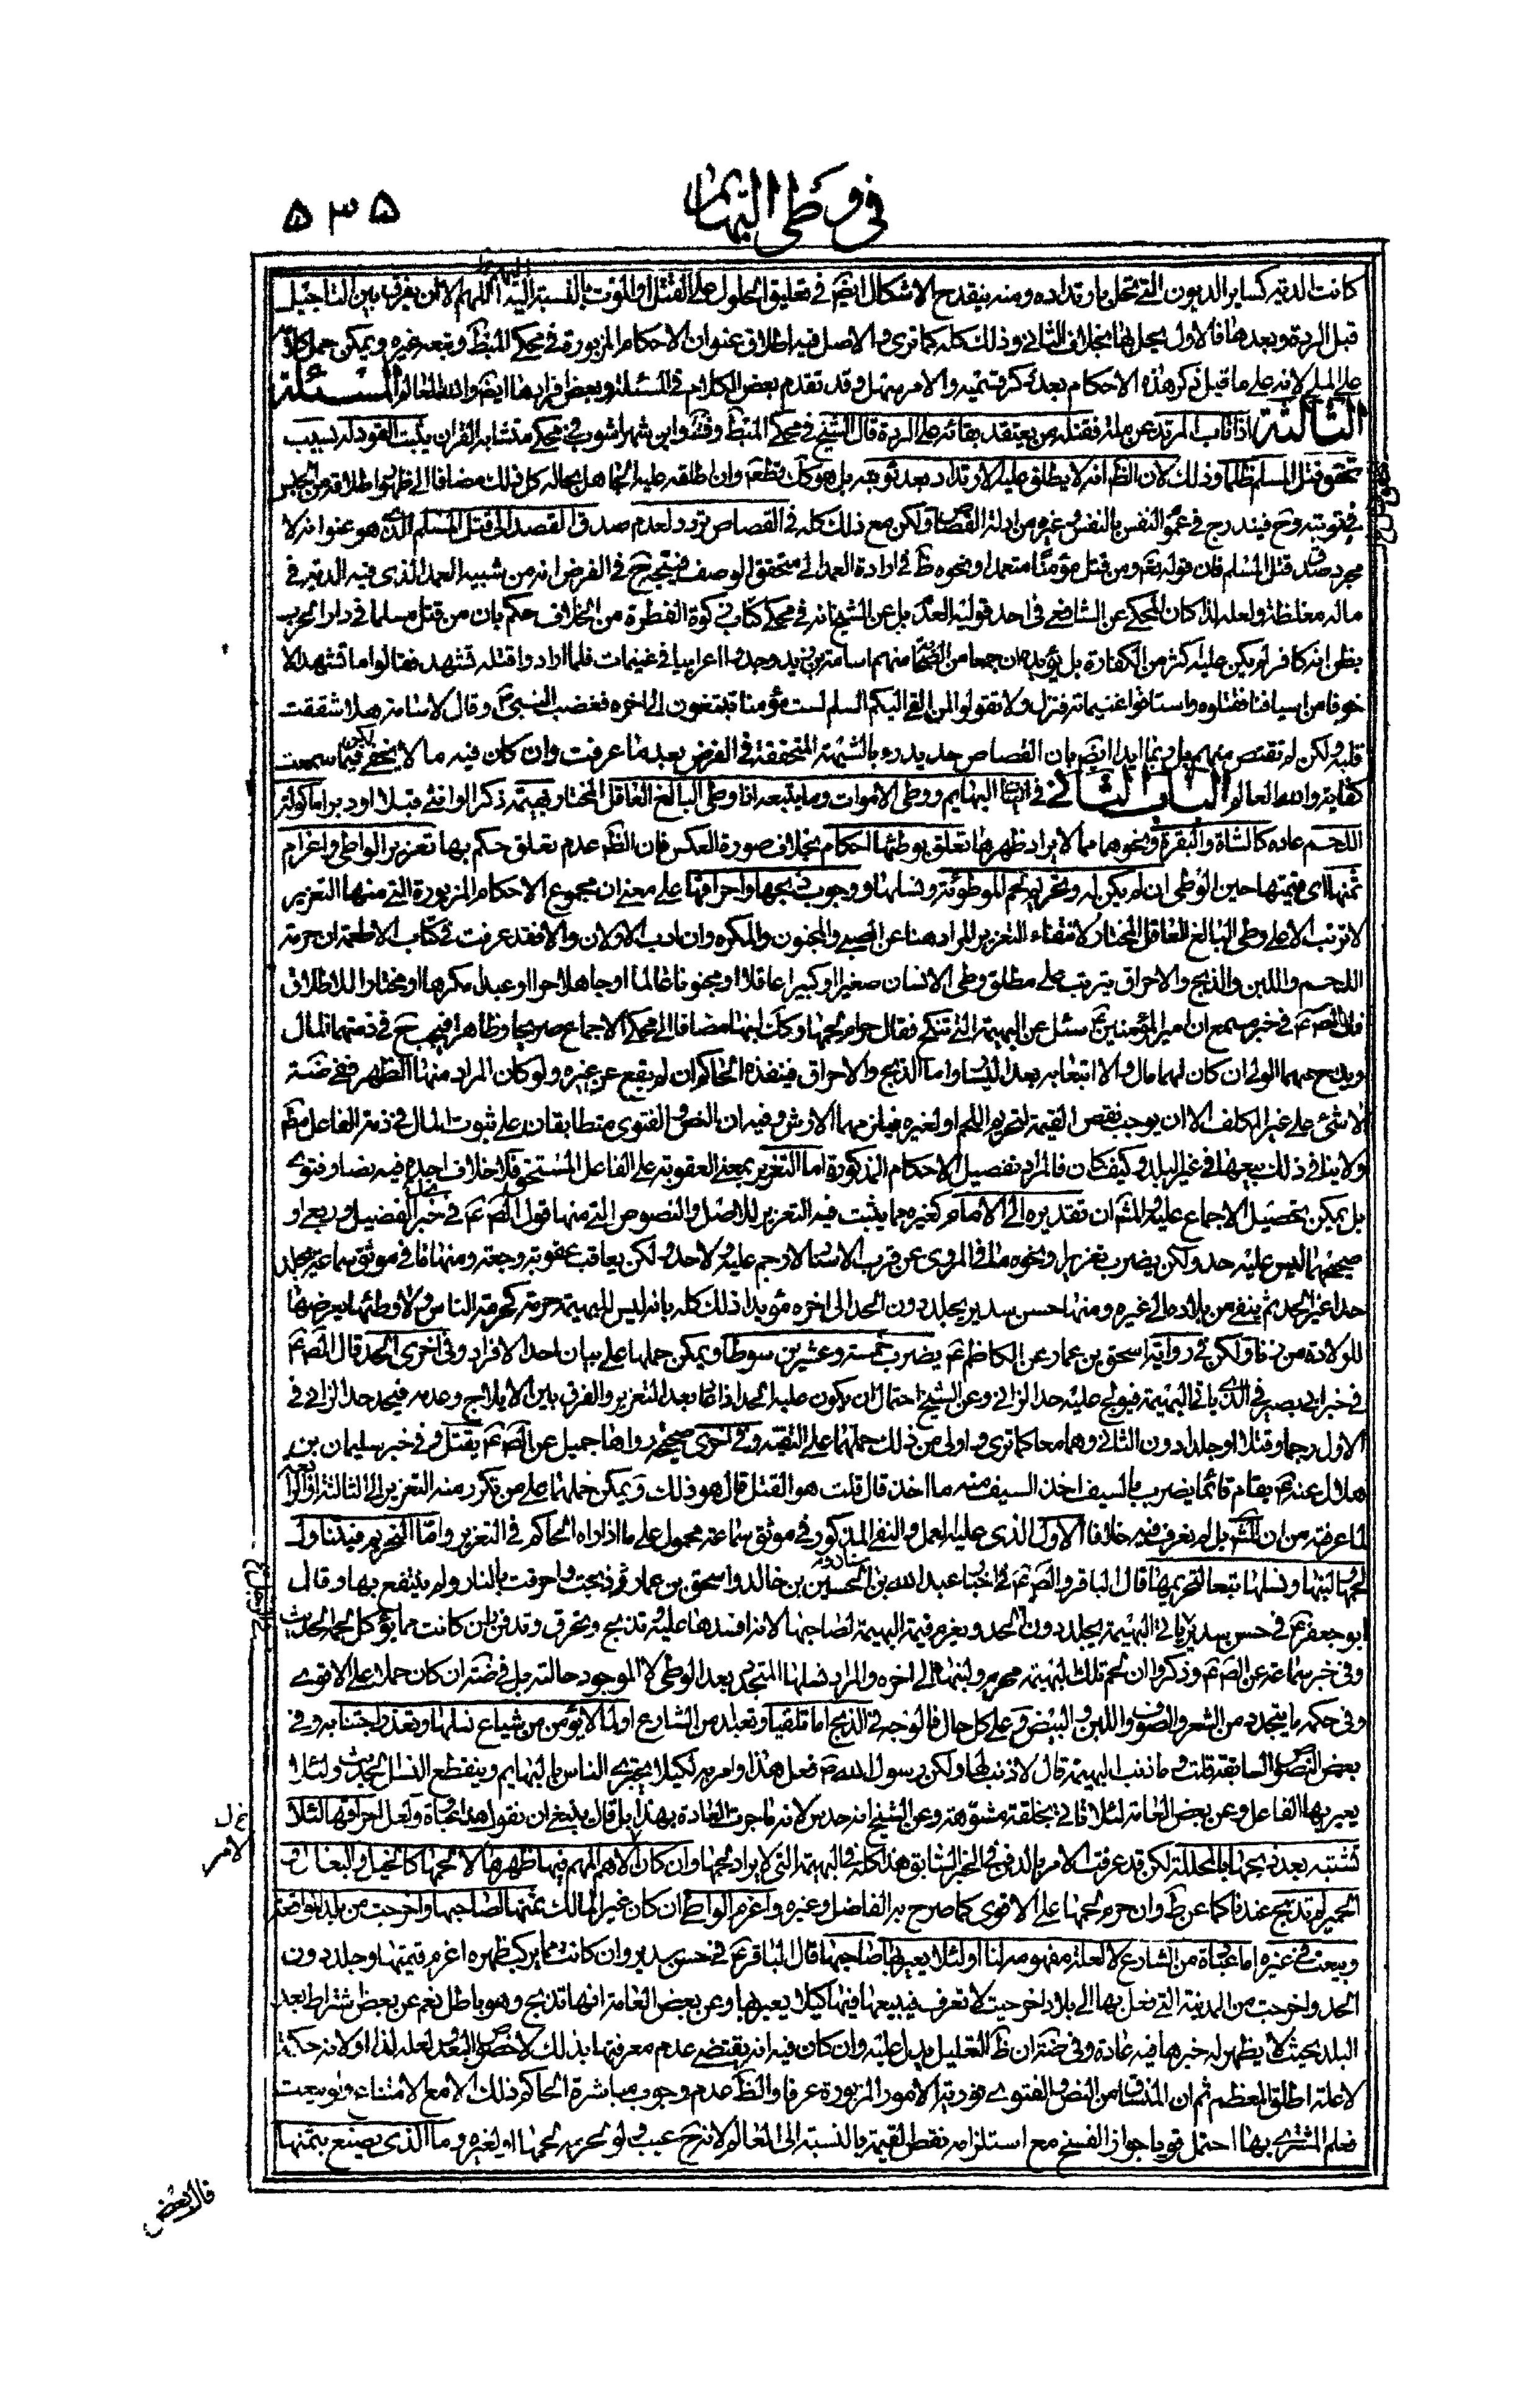 في وطى البهائم
٥٣٥
كانت الدية كساير الديون التي تحل بارتداده ومنه ينقدح الاشكال ايضا في تعليق الحلول على القتل او الموت بالنسبة اليه اللهم الا ان يفرق بين التاجيل
قبل الردة وبعدها فالاول يحل بها بخلاف الثاني وذلك كله كما ترى والاصل فيه اطلاق عنوان الاحكام المزبورة في محكي المبسوط وتبعه غيره ويمكن حمل كلامه
على الملي لانه على ما قيل ذكر هذه الاحكام بعد ذكر قسميه والامر سهل وقد تقدم بعض الكلام في المسئلة وبعض افرادها ايضا والله العالم المسئلة
الثالثة اذا تاب المرتد عن ملة فقتله من يعتقد بقائه على الردة قال الشيخ في محكي المبسوط وف وابن شهراشوب في محكي متشابه القران يثبت القود لسبب
تحقق قتل المسلم ظلما وذلك لان الظ انه لا يطلق عليه الارتداد بعد توبته بل هو كك قطعا وان اطلقه عليه الجاهل بحاله كل ذلك مضافا الى ظهور اطلاقه من الحبس
في توبته وح فيندرج في عموم النفس بالنفس وغيره من ادلة القصاص ولكن مع ذلك كله في القصاص تردد لعدم صدق القصد الى قتل المسلم الذي هو عنوانه لا
مجرد صدق قتل المسلم فان قوله تعالى ومن قتل مؤمنا متعمدا ونحوه ظ في ارادة العمد الى متحقق الوصف فيتجه ح في الفرض انه من شبيه العمد الذي فيه الدية في
ماله مغلظة ولعله لذا كان المحكي عن الشافعي في احد قوليه العدم بل عن الشيخ انه في محكي كتاب زكوة الفطرة من الخلاف حكم بان من قتل مسلما في دار الحرب
بظن انه كافر لم يكن عليه اكثر من الكفارة بل يؤيده ان جمعا من الصحابة منهم اسامة بن زيد وجدوا اعرابيا في غنيمات فلما ارادوا قتله تشهد فقالوا ما تشهد الا
خوفا من اسيافنا فقتلوه واستاقوا غنيماته فنزل ولا تقولوا لمن القى اليكم السلم لست مؤمنا تبتغون الى اخره فغضب النبي ص وقال لاسامة هلا شققت
قلبه ولكن لم تقتص منهم بل ربما ايد ايضا بان القصاص حد يدرء بالشبهة المتحققة في الفرض بعد ما عرفت وان كان فيه ما لا يخفى لكن فيما سمعت
كفاية والله العالم الباب الثاني في اتيان البهايم ووطى الاموات وما يتبعه اذا وطى البالغ العاقل المختار بهيمة ذكر الواطئ قبلا او دبرا ماكولة
اللحم عادة كالشاة والبقرة ونحوهما مما لا يراد ظهرها تعلق بوطئها احكام بخلاف صورة العكس فان الظ عدم تعلق حكم بها تعزير الواطى واغرام
ثمنها اى قيمتها حين الوطى ان لم يكن له وتحريم لحم الموطوئة ونسلها ووجوب ذبحها واحراقها على معنى ان مجموع الاحكام المزبورة التي منها التعزير
لا ترتب الا على وطى البالغ العاقل المختار لانتفاء التعزير المراد هنا عن الصبي والمجنون والمكره وان ادب الاولان والا فقد عرفت في كتاب الاطعمة ان حرمة
اللحم واللبن والذبح والاحراق يترتب على مطلق وطى الانسان صغيرا او كبيرا عاقلا او مجنونا عالما او جاهلا حرا او عبدا مكرها او مختارا للاطلاق
قال الص ع في خبر مسمع ان امير المؤمنين ع سئل عن البهيمة التي تنكح فقال حرام لحمها وكك لبنها مضافا الى محكي الاجماع صريحا وظاهرا فيجب ح في ذمتهما المال
ويدفع عنهما الولي ان كان لهما مال والا اتبعا به بعد اليسار واما الذبح والاحراق فينفذه الحاكم ان لم يقع عن غيره ولو كان المراد منها الظهر ففي ضة
لا شئ على غير المكلف الا ان يوجب نقص القيمة لتحريم اللحم او لغيره فيلزمهما الارش وفيه ان النص والفتوى متطابقان على ثبوت المال في ذمة الفاعل مط
ولا ينافي ذلك بيعها في غير البلد وكيف كان فالمراد تفصيل الاحكام المذكورة اما التعزير بمعنى العقوبة على الفاعل المستحق فلا خلاف اجده فيه نصا وفتوى
بل يمكن تحصيل الاجماع عليه والمش ان تقديره الى الامام كغيره مما يثبت فيه التعزير للاصل والنصوص التي منها قول الص ع في خبر الفضيل وربعي او
صحيحهما ليس عليه حد ولكن يضرب تعزيرا ونحوه ما في المروى عن قرب الاسناد لا رجم عليه ولا حد ولكن يعاقب عقوبة وجعة ومنها ما في موثق سماعة يجلد
حدا غير الحد ثم ينفى من بلاده الى غيره ومنها حسن سدير يجلد دون الحد الى اخره مؤيدا ذلك كله بانه ليس للبهيمة حرمة كحرمة الناس ولا وطئها يعرضها
للولادة من زنا ولكن في رواية اسحق بن عمار عن الكاظم ع يضرب خمسة وعشرين سوطا ويمكن حملها على بيان احد الافراد وفي اخرى الحد قال الص ع
في خبر ابي بصير في الذي ياتي البهيمة فيولج عليه حد الزاني وعن الشيخ احتمال ان يكون عليه الحد اذا عاد بعد التعزير والفرق بين الايلاج وعدمه فيحد حد الزاني في
الاول رجما وقتلا او جلدا دون الثاني وهما معا كما ترى واولى من ذلك حملها على التقية وفي اخرى صحيحة رواها جميل عن الص ع يقتل وفي خبر سليمان بن
هلال عنه ع يقام قائما يضرب بالسيف اخذ السيف منه ما اخذ قال قلت هو القتل قال هو ذلك ويمكن حملها على من تكرر منه التعزير الى الثالثة او الرابعة
لما عرفته من ان المش بل لم يعرف فيه خلافا الاول الذي عليه العمل والنفي المذكور في موثق سماعة محمول على ما اذا راه الحاكم في التعزير واما التحريم فيتناول
لحمها لبنها ونسلها تبعا لتحريمها قال الباقر والص ع في اخبار عبد الله بن سنان والحسين بن خالد واسحق بن عمار ذبحت واحرقت بالنار ولم ينتفع بها وقال
ابو جعفر ع في حسن سدير ياتي البهيمة يجلد دون الحد ويغرم قيمة البهيمة لصاحبها لانه افسدها عليه وتذبح وتحرق وتدفن ان كانت مما يؤكل لحمه الحديث
وفي خبر سماعة عن الص ع وذكروا ان لحم تلك البهيمة محرم ولبنها الى اخره والمراد نسلها المتجدد بعد الوطى لا الموجود حالته بل في ضة ان كان حملا على الاقوى
وفي حكمه ما يتجدد من الشعر والصوف واللبن والبيض وعلى كل حال فالوجه في الذبح اما تلقيا وتعبدا من الشارع او لما لا يؤمن من شياع نسلها وتعذر اجتنابه وفي
بعض النصوص السابقة قلت وما ذنب البهيمة قال لا ذنب لها ولكن رسول الله ص فعل هذا وامر به لكيلا يجترى الناس بالبهايم وينقطع النسل الحديث ولئلا
يعير بها الفاعل وعن بعض العامة لئلا تاتي بخلقة مشوهة وعن الشيخ انه حدس لانه ما جرت العادة بهذا بل قال ينبغي ان نقول هذا عبادة ولعل احراقها لئلا
تشتبه بعد ذبحها بالمحللة لكن قد عرفت الامر بالدفن في الخبر السابق هذا كله في البهيمة التي لا يراد لحمها وان كان الاهم المهم فيها ظهرها لا لحمها كالخيل والبغال و
الحمير لم تذبح عندنا كما عن ط وان حرم لحمها على الاقوى كما صرح به الفاضل وغيره واغرم الواطى ان كان غير المالك ثمنها لصاحبها واخرجت من بلد المواقعة
وبيعت في غيره اما عبادة من الشارع لا لعلة مفهومة لنا او لئلا يعير بها صاحبها قال الباقر ع في حسن سدير وان كانت مما يركب ظهره اغرم قيمتها وجلد دون
الحد واخرجت من المدينة التي فعل بها الى بلاد اخر حيث لا تعرف فيبيعها فيها كيلا يعير بها وعن بعض العامة انها تذبح وهو باطل نعم عن بعض اشتراط بعد
البلد بحيث لا يظهر له خبرها فيه عادة وفي ضة ان ظ التعليل يدل عليه وان كان فيه انه يقتضى عدم معرفتها بذلك لا خصوص البعد لعله لذا او لانه حكمة
لا علة اطلق المعظم ثم ان المنساق من النص والفتوى فورية الامور المزبورة عرفا والظ عدم وجوب مباشرة الحاكم ذلك الا مع الامتناع ولو بيعت
فعلم المشتري بها احتمل قويا جواز الفسخ مع استلزامه نقص القيمة بالنسبة الى العالم لانه ح عيب ولو لتحريم لحمها او لغيره وما الذي يصنع بثمنها
قال بعض